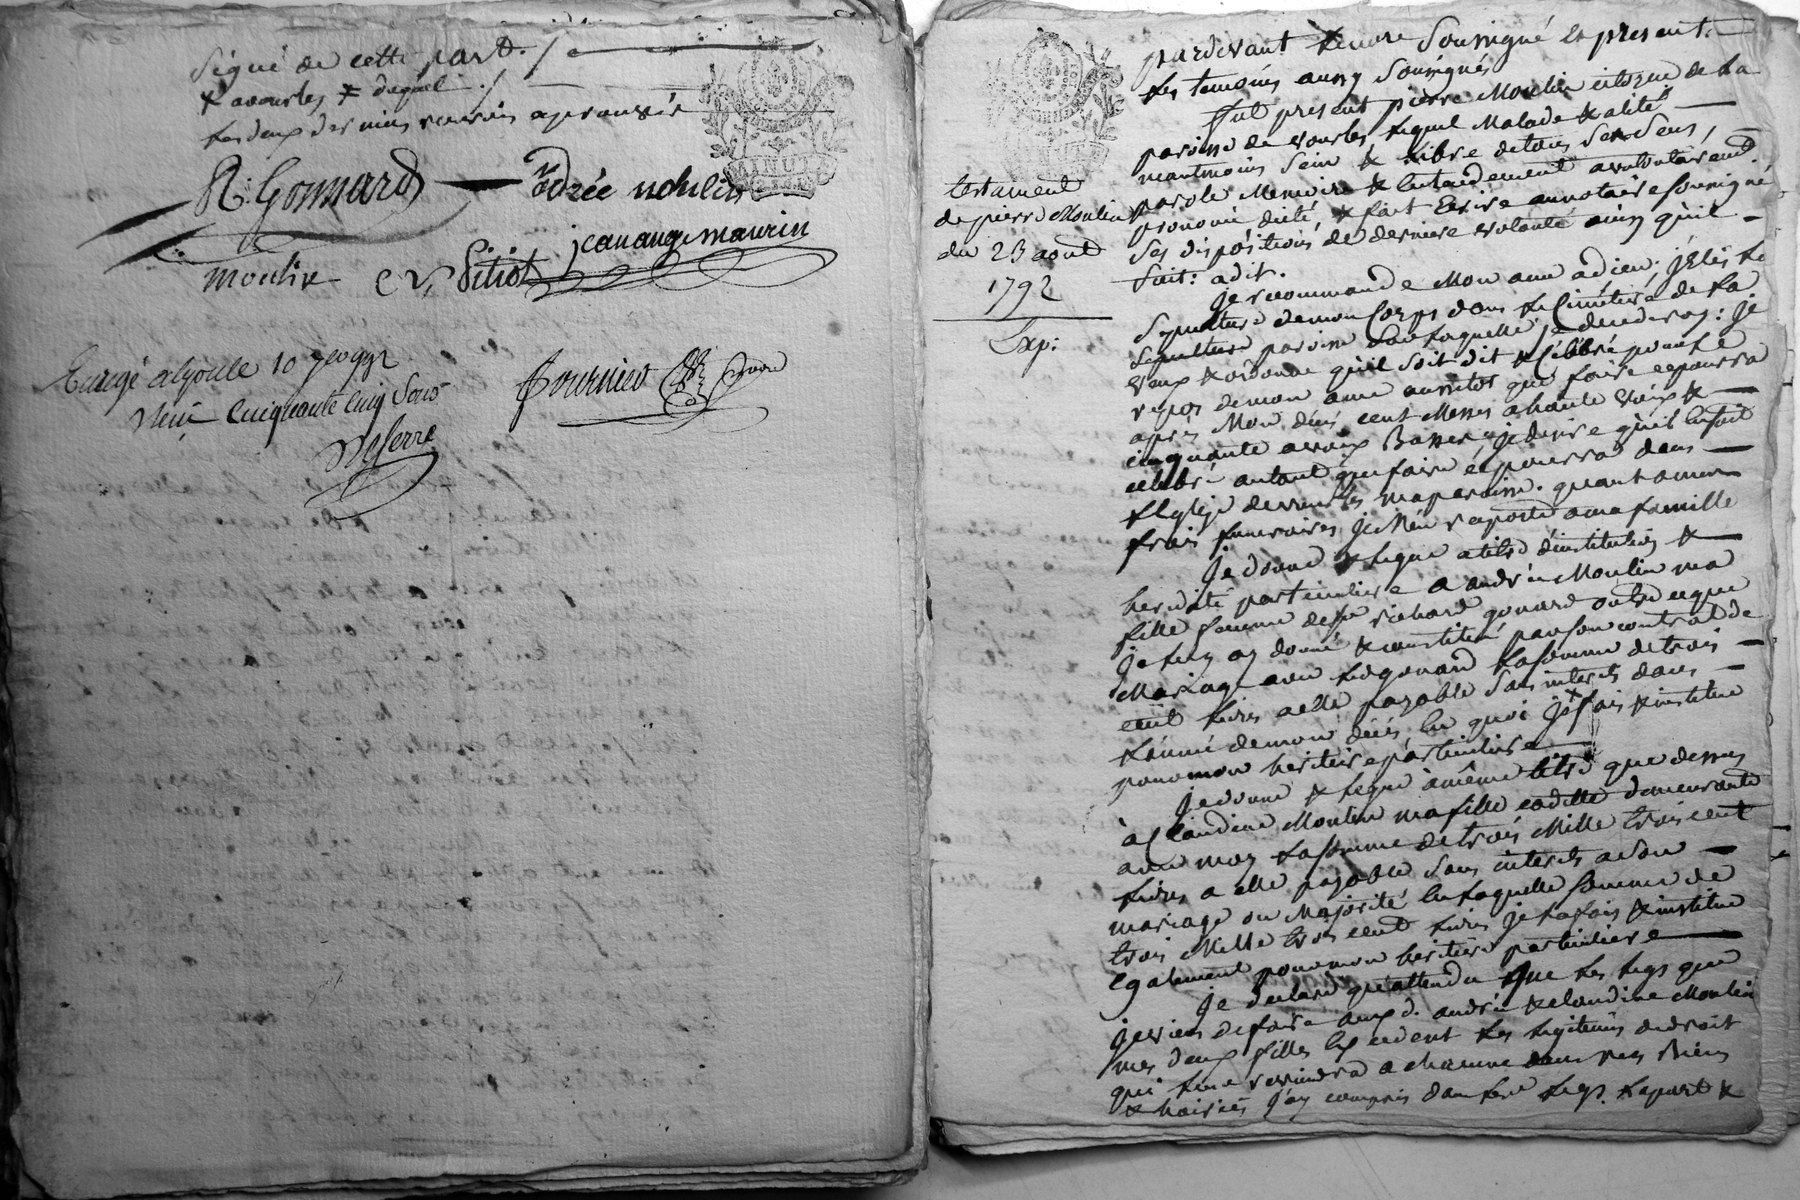 Signé de cette part. /
& avourles & duquel ./
les deux derniers renvois aprouvés
R: Gonnard
Andrée moulin
jean ange maurin
moulin
Pitiot
Enregé a Izoule 10 7bre 1792
Reçu Cinquante Cinq Sous
Deserre
fournier
testament
de pierre Moulin
du 23 aoust
1792
Exp:
pardevant le nore Soussigné & present
les temoins aussy Soussignés
fut present pierre Moulin citoyen de la
paroisse de vourles lequel Malade & alité
neantmoins Sain & libre de tous Ses Sens,
parole Memoire & Entendement a volontairement
prononcé dicté, & fait Ecrire au notaire soussigné
Ses dispositions de derniere volonté ainsy qu'il
Suit: a dit.
Je recommande Mon ame a dieu; j'Elis la
Sepulture de mon Corps dans le Cimetiere de la
paroisse dans laquelle je decederay: Je
veux & ordonne qu'il soit dit & Célébré pour le
repos de mon ame aussitot que faire ce pourra
après Mon décés cent Messes a haute voix &
cinquante a voix Basse & je desire qu'il En soit
célébré autant que faire ce pourra dans
l'Eglise de vourles ma paroisse. quant a mes
frais funeraires, Je M'en raporte a ma famille
Je donne & legue a titre d'institution &
heredité particuliere a andrée Moulin ma
fille femme de sr richard gonard outre ce que
Je luy ay donné & constitué par son contrat de
Mariage avec led gonard la somme de trois
cent livres a elle payable Sans interets dans
l'année de mon décés, En quoi je la fais & institue
pour mon heritiere particuliere
Je donne & legue à même titre que dessus
à Claudine Moulin ma fille cadette demeurante
avec moy la somme de trois Mille trois cent
livres a elle payable Sans interets a Son
mariage ou Majorité En laquelle Somme de
trois Mille trois cent livres Je la fais & institue
Egalement pour mon heritiere particuliere
Je declare qu'attendu que les legs que
je viens de faire auxd. andrée & claudine Moulin
mes deux filles Excedent les legitimes de droit
qui leur reviendra a chacune dans mes Biens
& hoiries j'ay compris dans leur legs. la part &